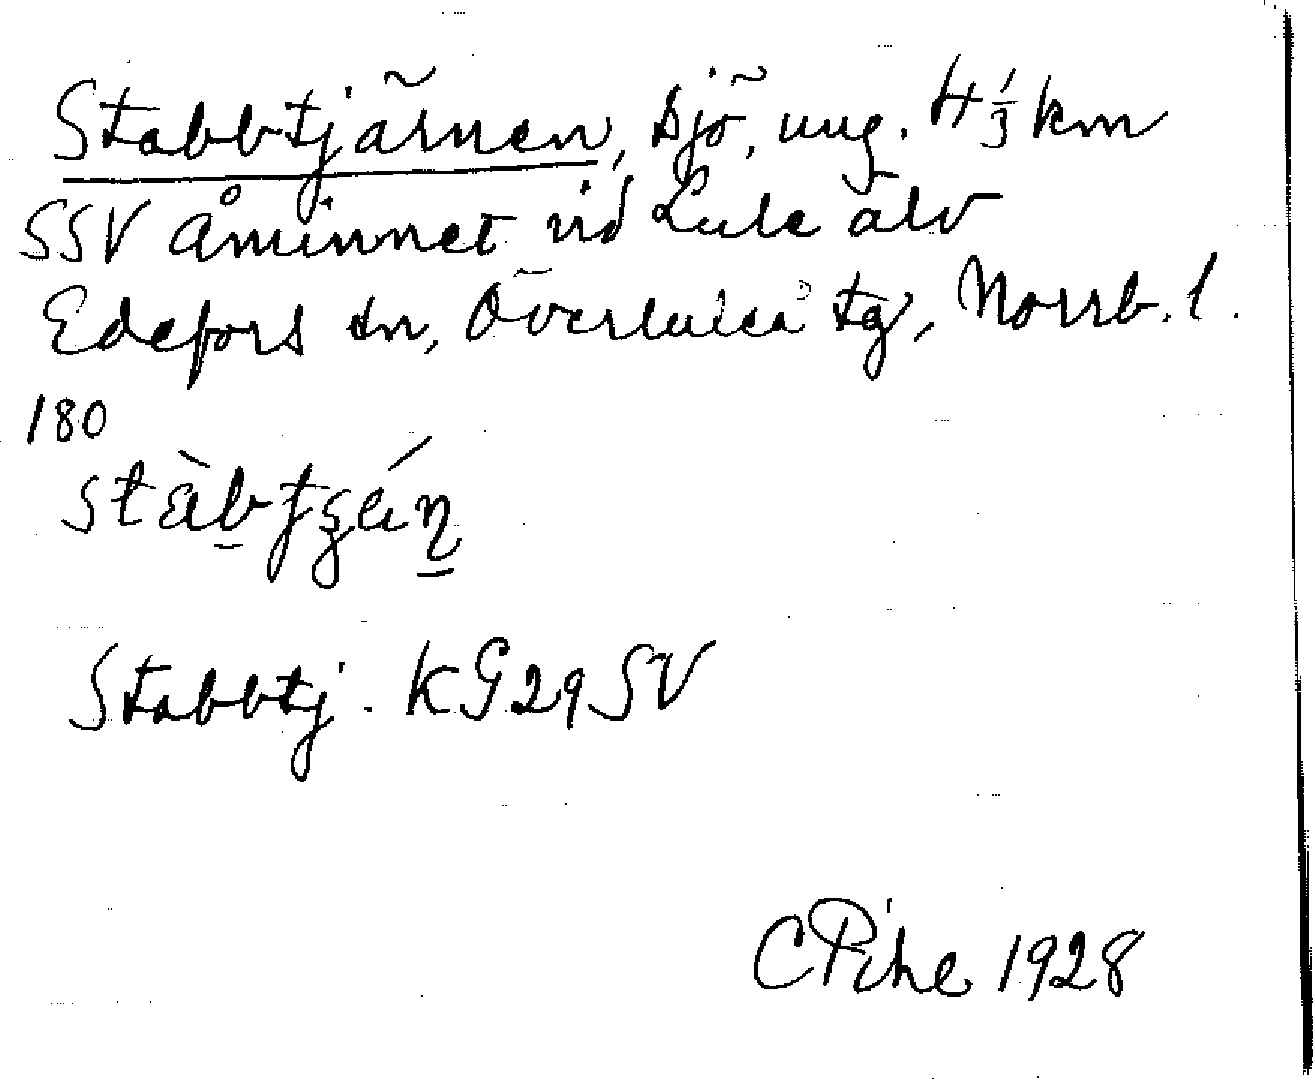 Stabbtjärnen, sjö, ung. 4 1/3 km
SSV Åminnet vid Lule älv
Edefors sn, Överluleå tg, Norrb. l.
180
Stabbtj. KG29SV
C Pihl 1928